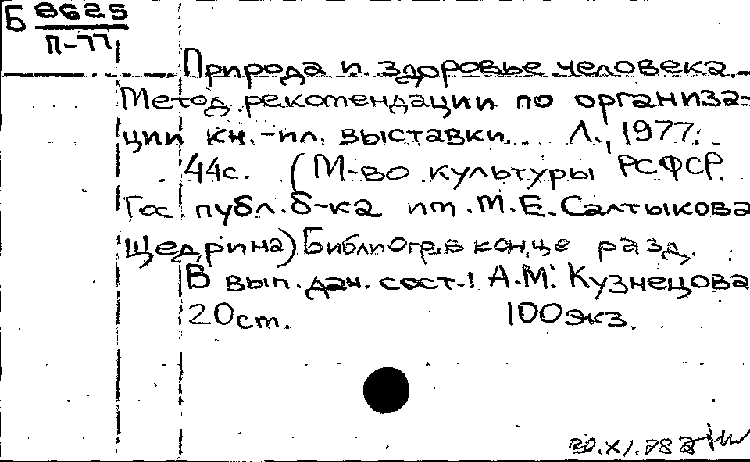 Б 8625
П-77
Природа и здоровье человека.
Метод. рекомендации по организа-
ции кн.-ил. выставки. Л., 1977.
44с. (М-во культуры РСФСР.
Гос. публ. б-ка им. М.Е. Салтыкова
Щедрина) Библиогр. в конце разд.
В вып. дан. сост.: А.М. Кузнецова
20см. 100экз.